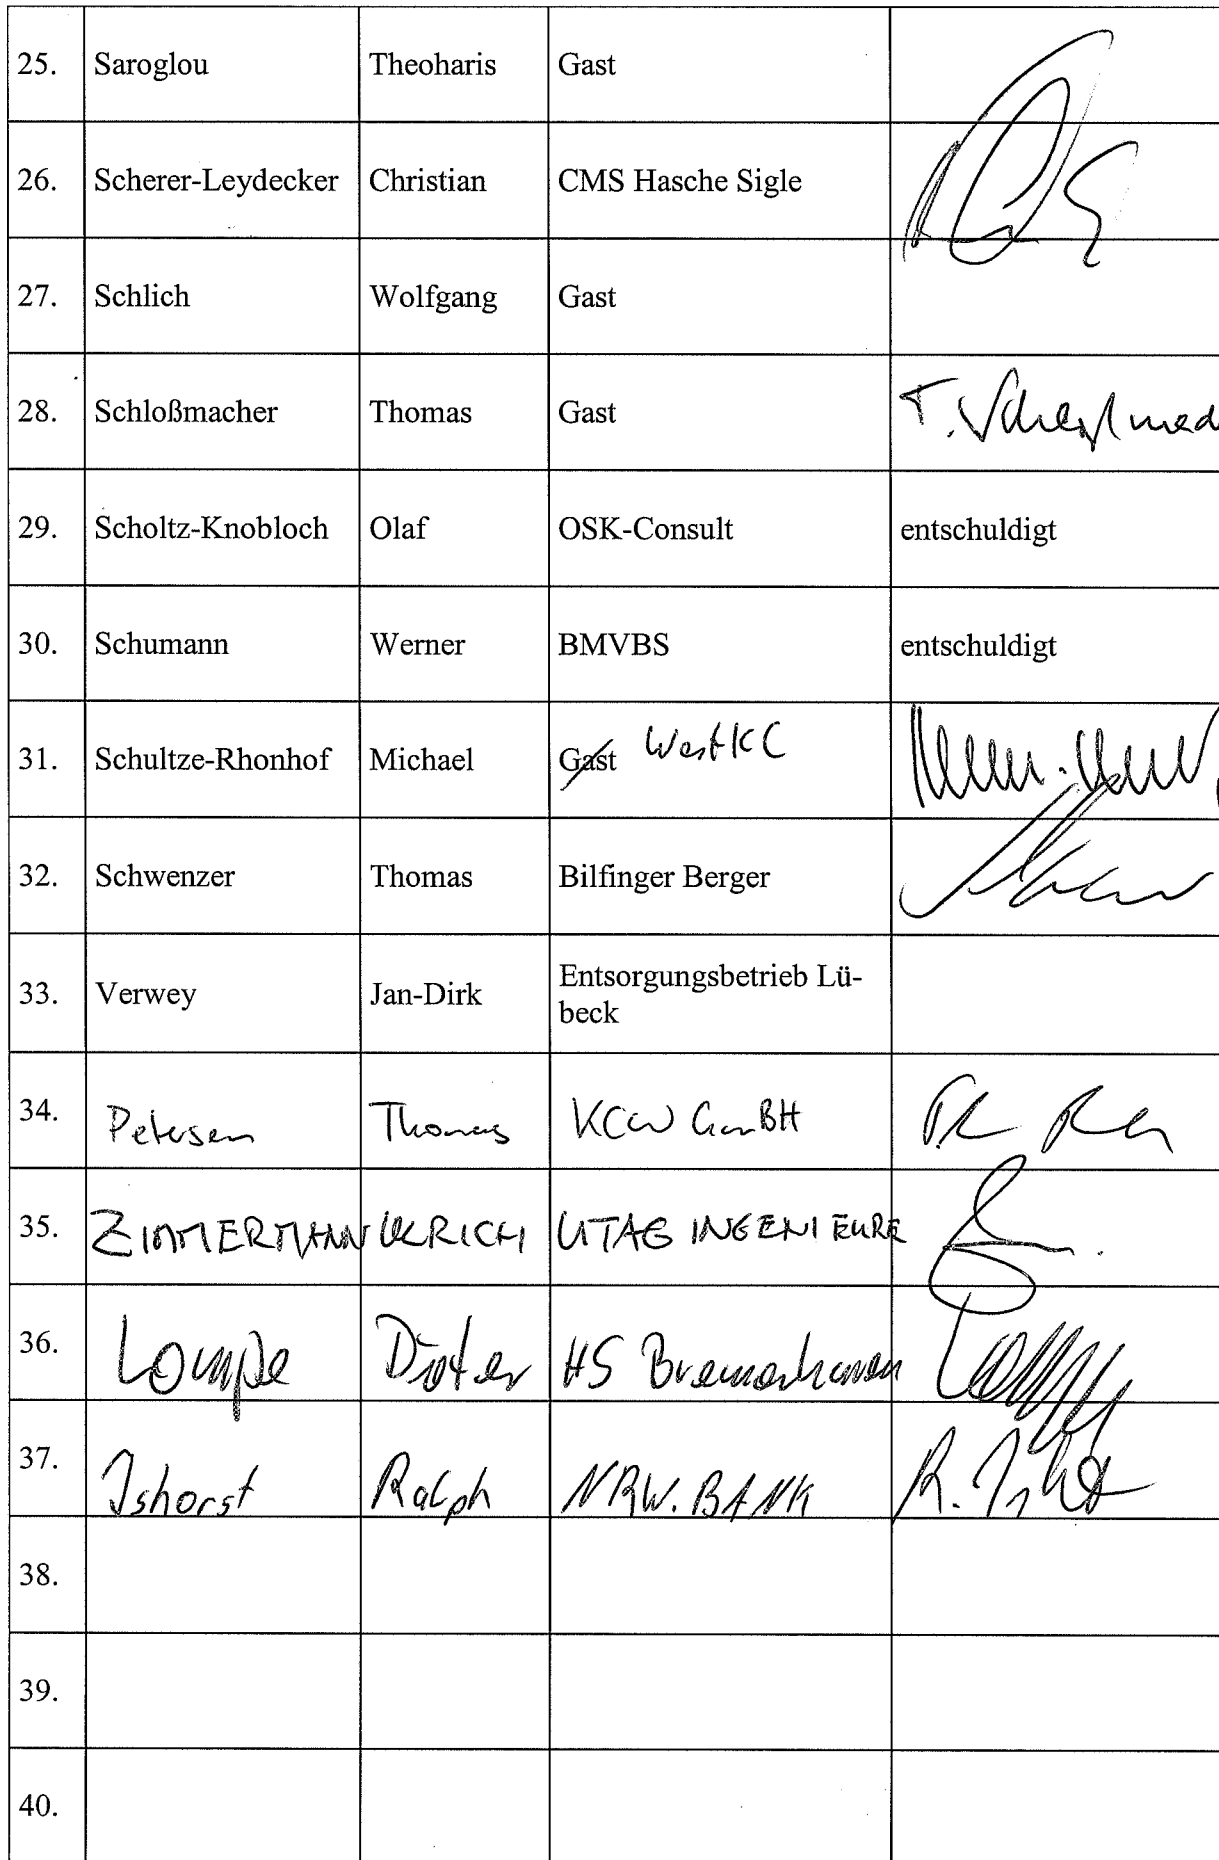 25. Saroglou Theoharis Gast
26. Scherer-Leydecker Christian CMS Hasche Sigle
27. Schlich Wolfgang Gast
28. Schloßmacher Thomas Gast
29. Scholtz-Knobloch Olaf OSK-Consult entschuldigt
30. Schumann Werner BMVBS entschuldigt
31. Schultze-Rhonhof Michael Gast WestKC
32. Schwenzer Thomas Bilfinger Berger
33. Verwey Jan-Dirk Entsorgungsbetrieb Lü-
beck
34. Petersen Thomas KCW GmBH
35. ZIMMERMANN ULRICH UTAG INGENIEURE
36. Lompe Dieter HS Bremerhaven
37. Ishorst Ralph NRW.BANK
38.
39.
40.